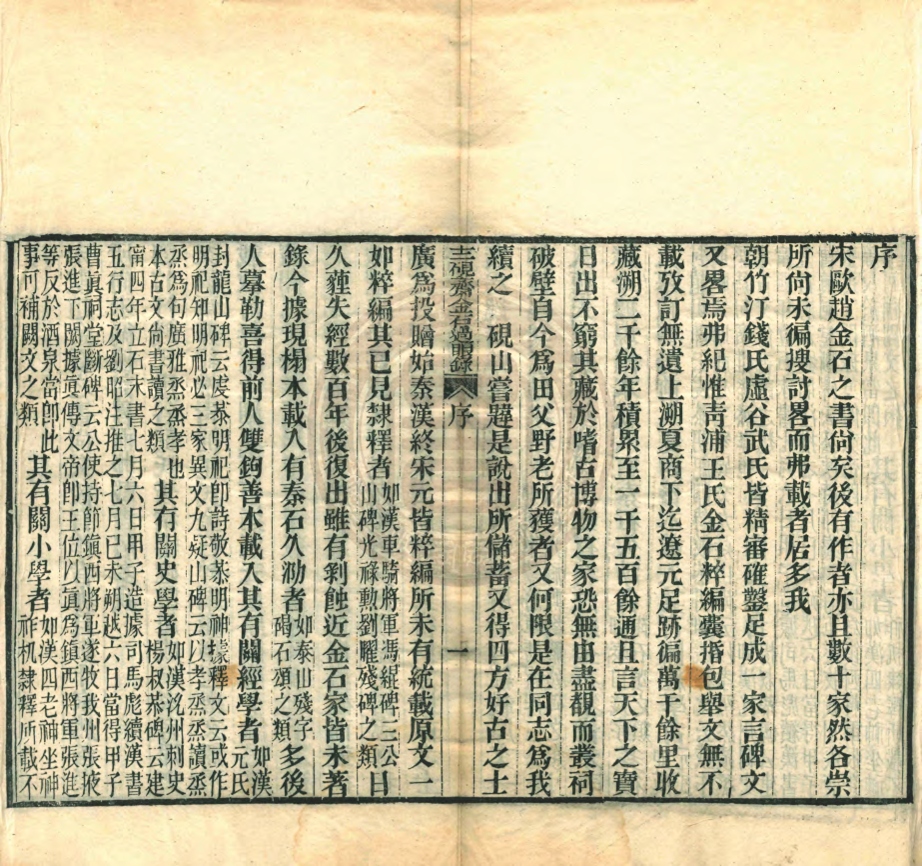 序
宋歐趙金石之書尙矣後有作者亦且數十家然各崇
所尙未徧搜討畧而弗載者居多我
朝竹汀錢氏虛谷武氏皆精審確鑿足成一家言碑文
又畧焉弗紀惟靑浦王氏金石粹編囊揩包舉文無不
載攷訂無遺上溯夏商下迄遼元足跡徧萬千餘里收
藏溯二千餘年積累至一千五百餘通且言天下之寶
日出不窮其藏於嗜古博物之家恐無由盡覩而叢祠
破壁自今爲田父野老所獲者又何限是在同志爲我
續之 硯山嘗韙是說出所儲蓄又得四方好古之士
十二硯齋金石過眼錄 序 一
廣爲投贈始秦漢終宋元皆粹編所未有統載原文一
如粹編其已見隸釋者如漢車騎將軍馮緄碑三公山碑光祿勳劉曜殘碑之類日
久薶失經數百年後復出雖有剝蝕近金石家皆未著
錄今據現榻本載入有泰石久泐者如泰山殘字碣石頌之類多後
人摹勒喜得前人雙鉤善本載入其有關經學者如漢元氏
封龍山碑云虔恭明祀卽詩敬恭明神據釋文云或作
明祀知明祀必三家異文九疑山碑云以孝烝烝讀烝
烝爲句廣雅烝烝孝也
本古文尙書讀之類其有關史學者如漢洺州刺史楊叔恭碑云建
甯四年立石末書七月六日甲子造據司馬彪續漢書
五行志及劉昭注推之七月己未朔越六日當得甲子
曹眞祠堂斷碑云公使持節鎮西將軍遂牧我州張掖
張進下闕據眞傳文帝卽王位以眞爲鎮西將軍張進
等反於酒泉當卽此
事可補闕文之類其有關小學者如漢四老神坐神祚机隸釋所載不